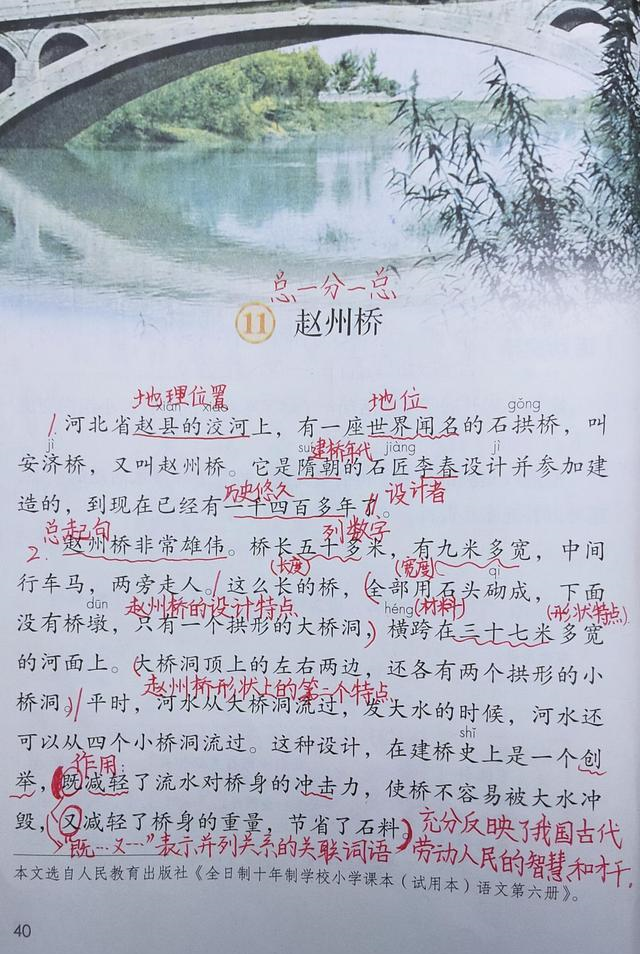 总一分一总
11 赵州桥
地理位置 地位
xiàn xiáo gǒng
1. 河北省赵县的洨河上，有一座世界闻名的石拱桥，叫
jì suí 建桥年代 jiàng jì
安济桥，又叫赵州桥。它是隋朝的石匠李春设计并参加建
历史悠久 设计者
造的，到现在已经有一千四百多年了。
总起句 列数字
2. 赵州桥非常雄伟。桥长五十多米，有九米多宽，中间
(长度) (宽度) qì
行车马，两旁走人。这么长的桥，全部用石头砌成，下面
dūn 赵州桥的设计特点 héng (材料) (形状特点)
没有桥墩，只有一个拱形的大桥洞，横跨在三十七米多宽
的河面上。大桥洞顶上的左右两边，还各有两个拱形的小
赵州桥形状上的第二个特点
桥洞。平时，河水从大桥洞流过，发大水的时候，河水还
shǐ
可以从四个小桥洞流过。这种设计，在建桥史上是一个创
作用:
举，既减轻了流水对桥身的冲击力，使桥不容易被大水冲
毁，又减轻了桥身的重量，节省了石料。充分反映了我国古代
"既…又…"表示并列关系的关联词语 劳动人民的智慧和才干.
本文选自人民教育出版社《全日制十年制学校小学课本（试用本）语文第六册》。
40